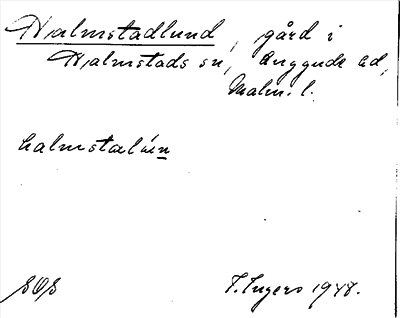 Hjalmstadlund, gård i
Hjalmstads sn, Anggude hd,
Malm. l.
halmstalún
SOS T. Ingers 1948.